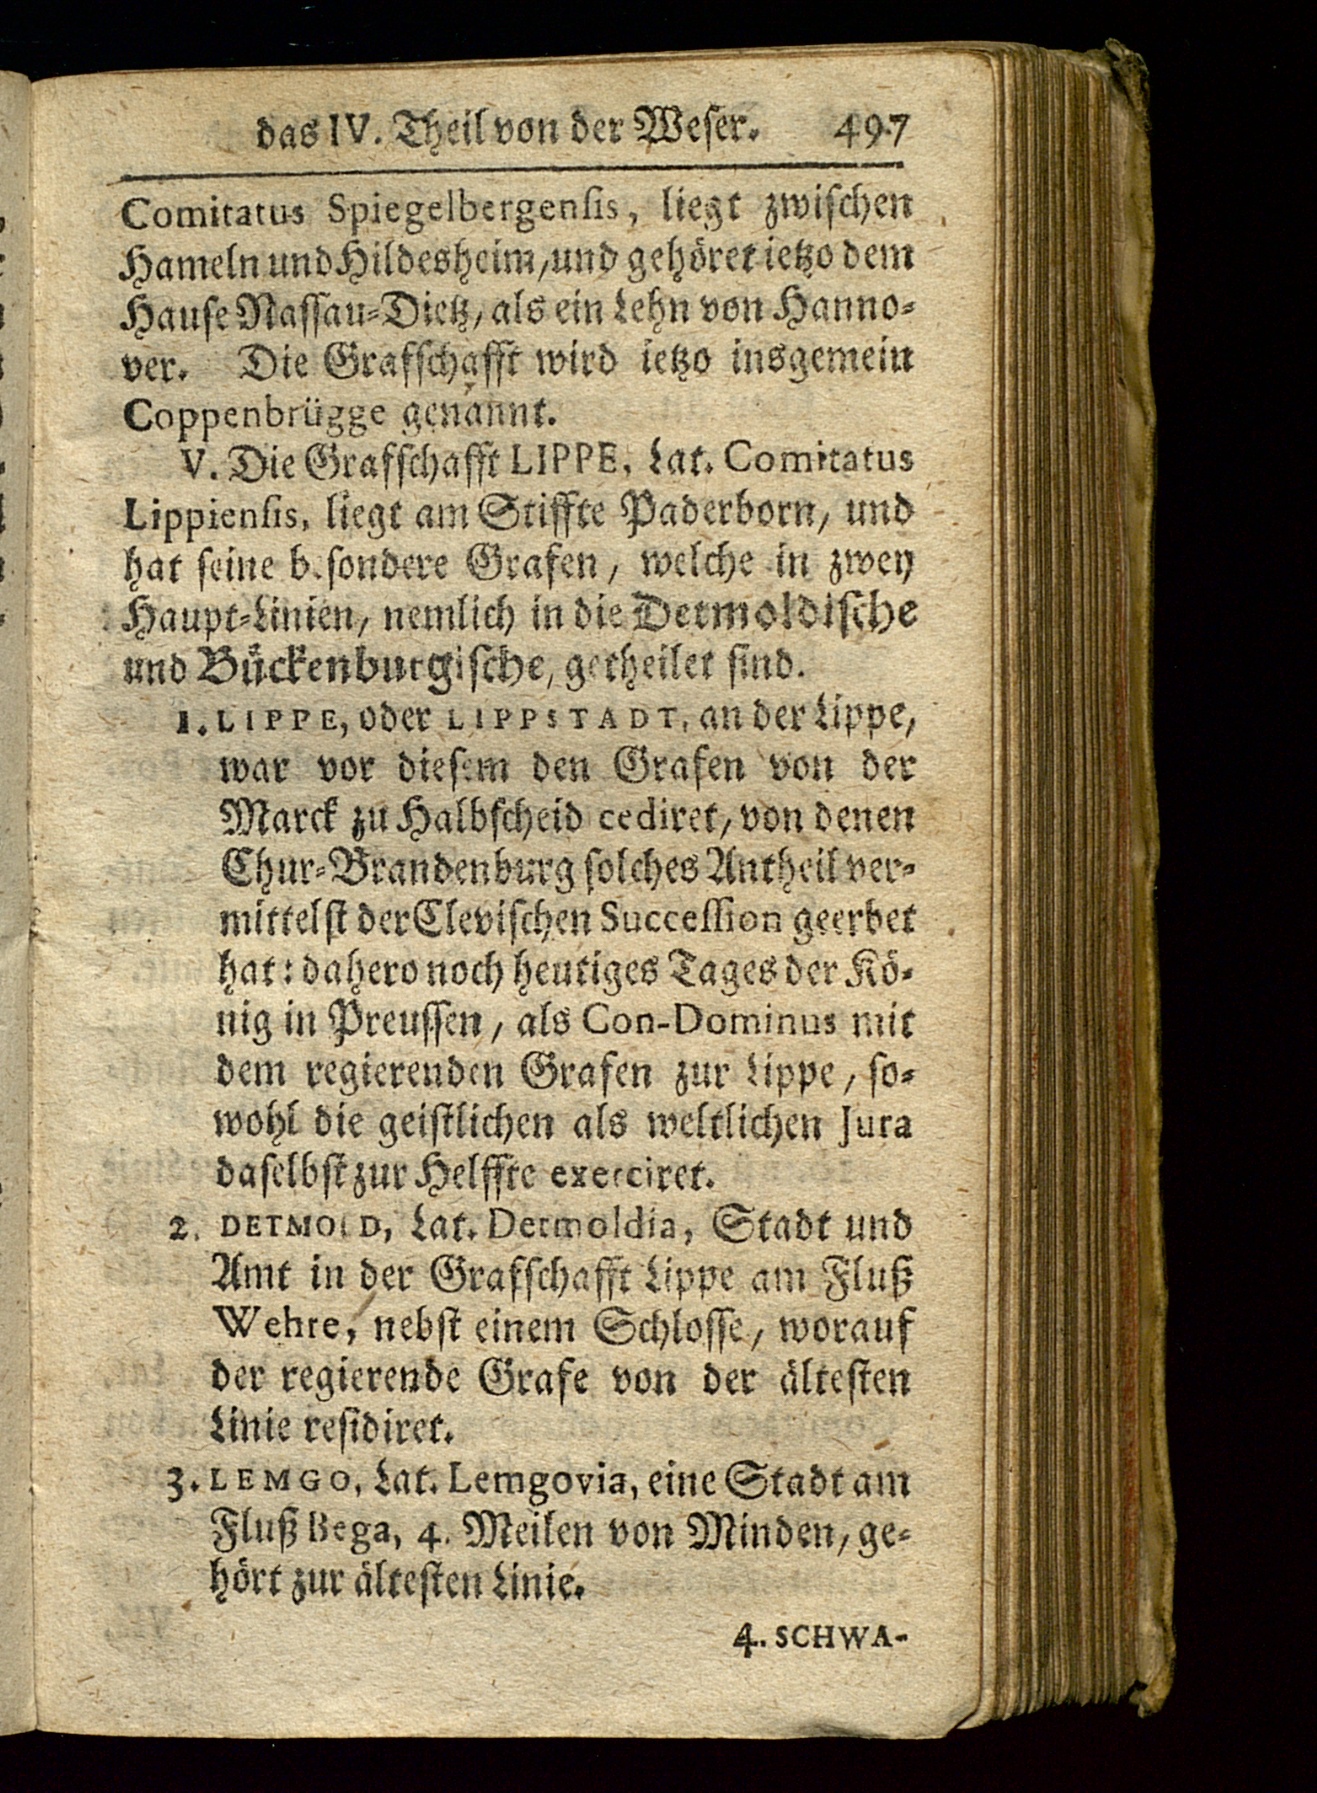 das IV. Theil von der Weser. 497
Comitatus Spiegelbergensis, liegt zwischen
Hameln und Hildesheim, und gehöret ietzo dem
Hause Nassau-Dietz, als ein Lehn von Hanno-
ver. Die Grafschafft wird ietzo insgemein
Coppenbrügge genannt.
V. Die Grafschafft LIPPE, Lat. Comitatus
Lippiensis, liegt am Stiffte Paderborn, und
hat seine besondere Grafen, welche in zwey
Haupt-Linien, nemlich in die Detmoldische
und Bückenburgische, getheilet sind.
1. LIPPE, oder LIPPSTADT, an der Lippe,
war vor diesem den Grafen von der
Marck zu Halbscheid cediret, von denen
Chur-Brandenburg solches Antheil ver-
mittelst der Clevischen Succession geerbet
hat: dahero noch heutiges Tages der Kö-
nig in Preussen, als Con-Dominus mit
dem regierenden Grafen zur Lippe, so-
wohl die geistlichen als weltlichen Jura
daselbst zur Helffte exerciret.
2. DETMOLD, Lat. Detmoldia, Stadt und
Amt in der Grafschafft Lippe am Fluß
Wehre, nebst einem Schlosse, worauf
der regierende Grafe von der ältesten
Linie residiret.
3. LEMGO, Lat. Lemgovia, eine Stadt am
Fluß Bega, 4. Meilen von Minden, ge-
hört zur ältesten Linie.
4. SCHWA-